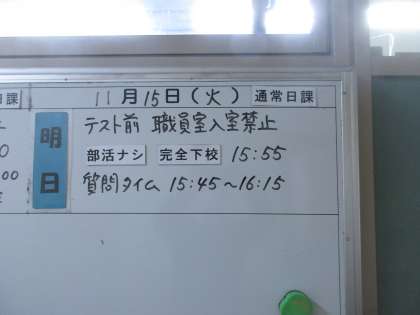 日課
11月15日(火) 通常日課
明日
テスト前 職員室入室禁止
部活ナシ 完全下校 15:55
質問タイム 15:45~16:15
0
00